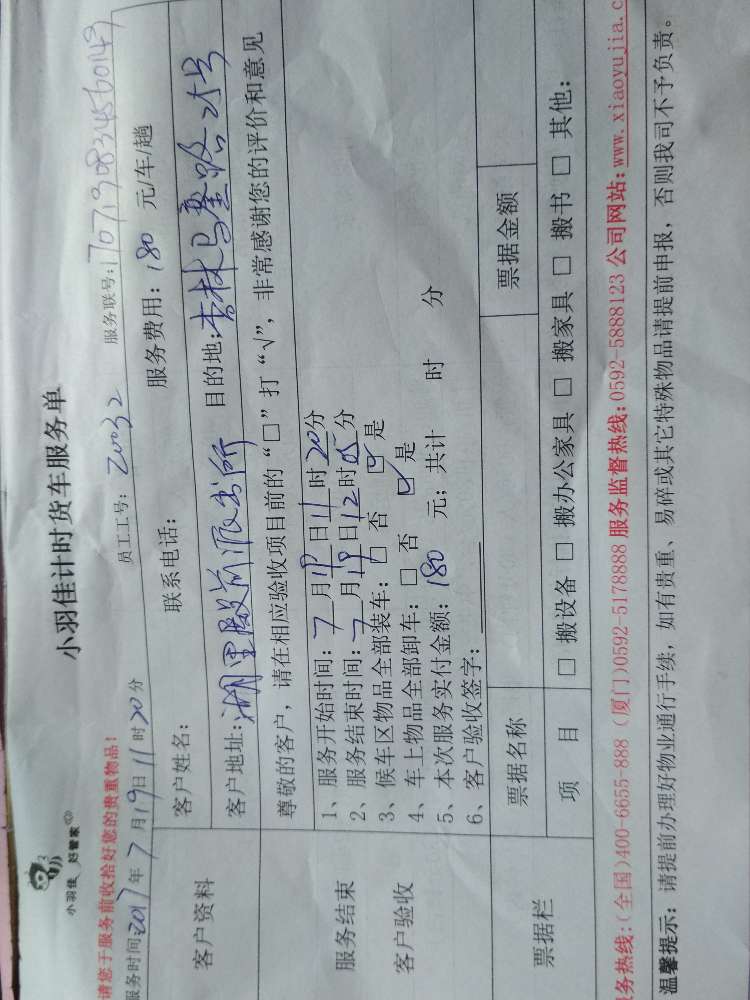 小羽佳 好管家
小羽佳计时货车服务单
请您于服务前收拾好您的贵重物品!
服务时间2017年7月19日11时20分 员工工号: 20032 服务联号:1707190834560149
客户资料
客户姓名: 联系电话: 服务费用: 180 元/车/趟
客户地址:湖里殿前派出所 目的地:杏林马銮路25号
尊敬的客户,请在相应验收项目前的“□”打“√”,非常感谢您的评价和意见
服务结束
客户验收
1、服务开始时间: 7 月19日11时20分
2、服务结束时间: 7 月19日12时05分
3、候车区物品全部装车: □ 否 ☑ 是
4、车上物品全部卸车: □ 否 ☑ 是
5、本次服务实付金额: 180 元; 共计 时 分
6、客户验收签字:
票据栏
票据名称 票据金额
项 目 □ 搬设备 □ 搬办公家具 □ 搬家具 □ 搬书 □ 其他:
务热线:(全国)400-6655-888 (厦门)0592-5178888 服务监督热线:0592-5888123 公司网站: www.xiaoyujia.c
温馨提示: 请提前办理好物业通行手续, 如有贵重、易碎或其它特殊物品请提前申报, 否则我司不予负责。